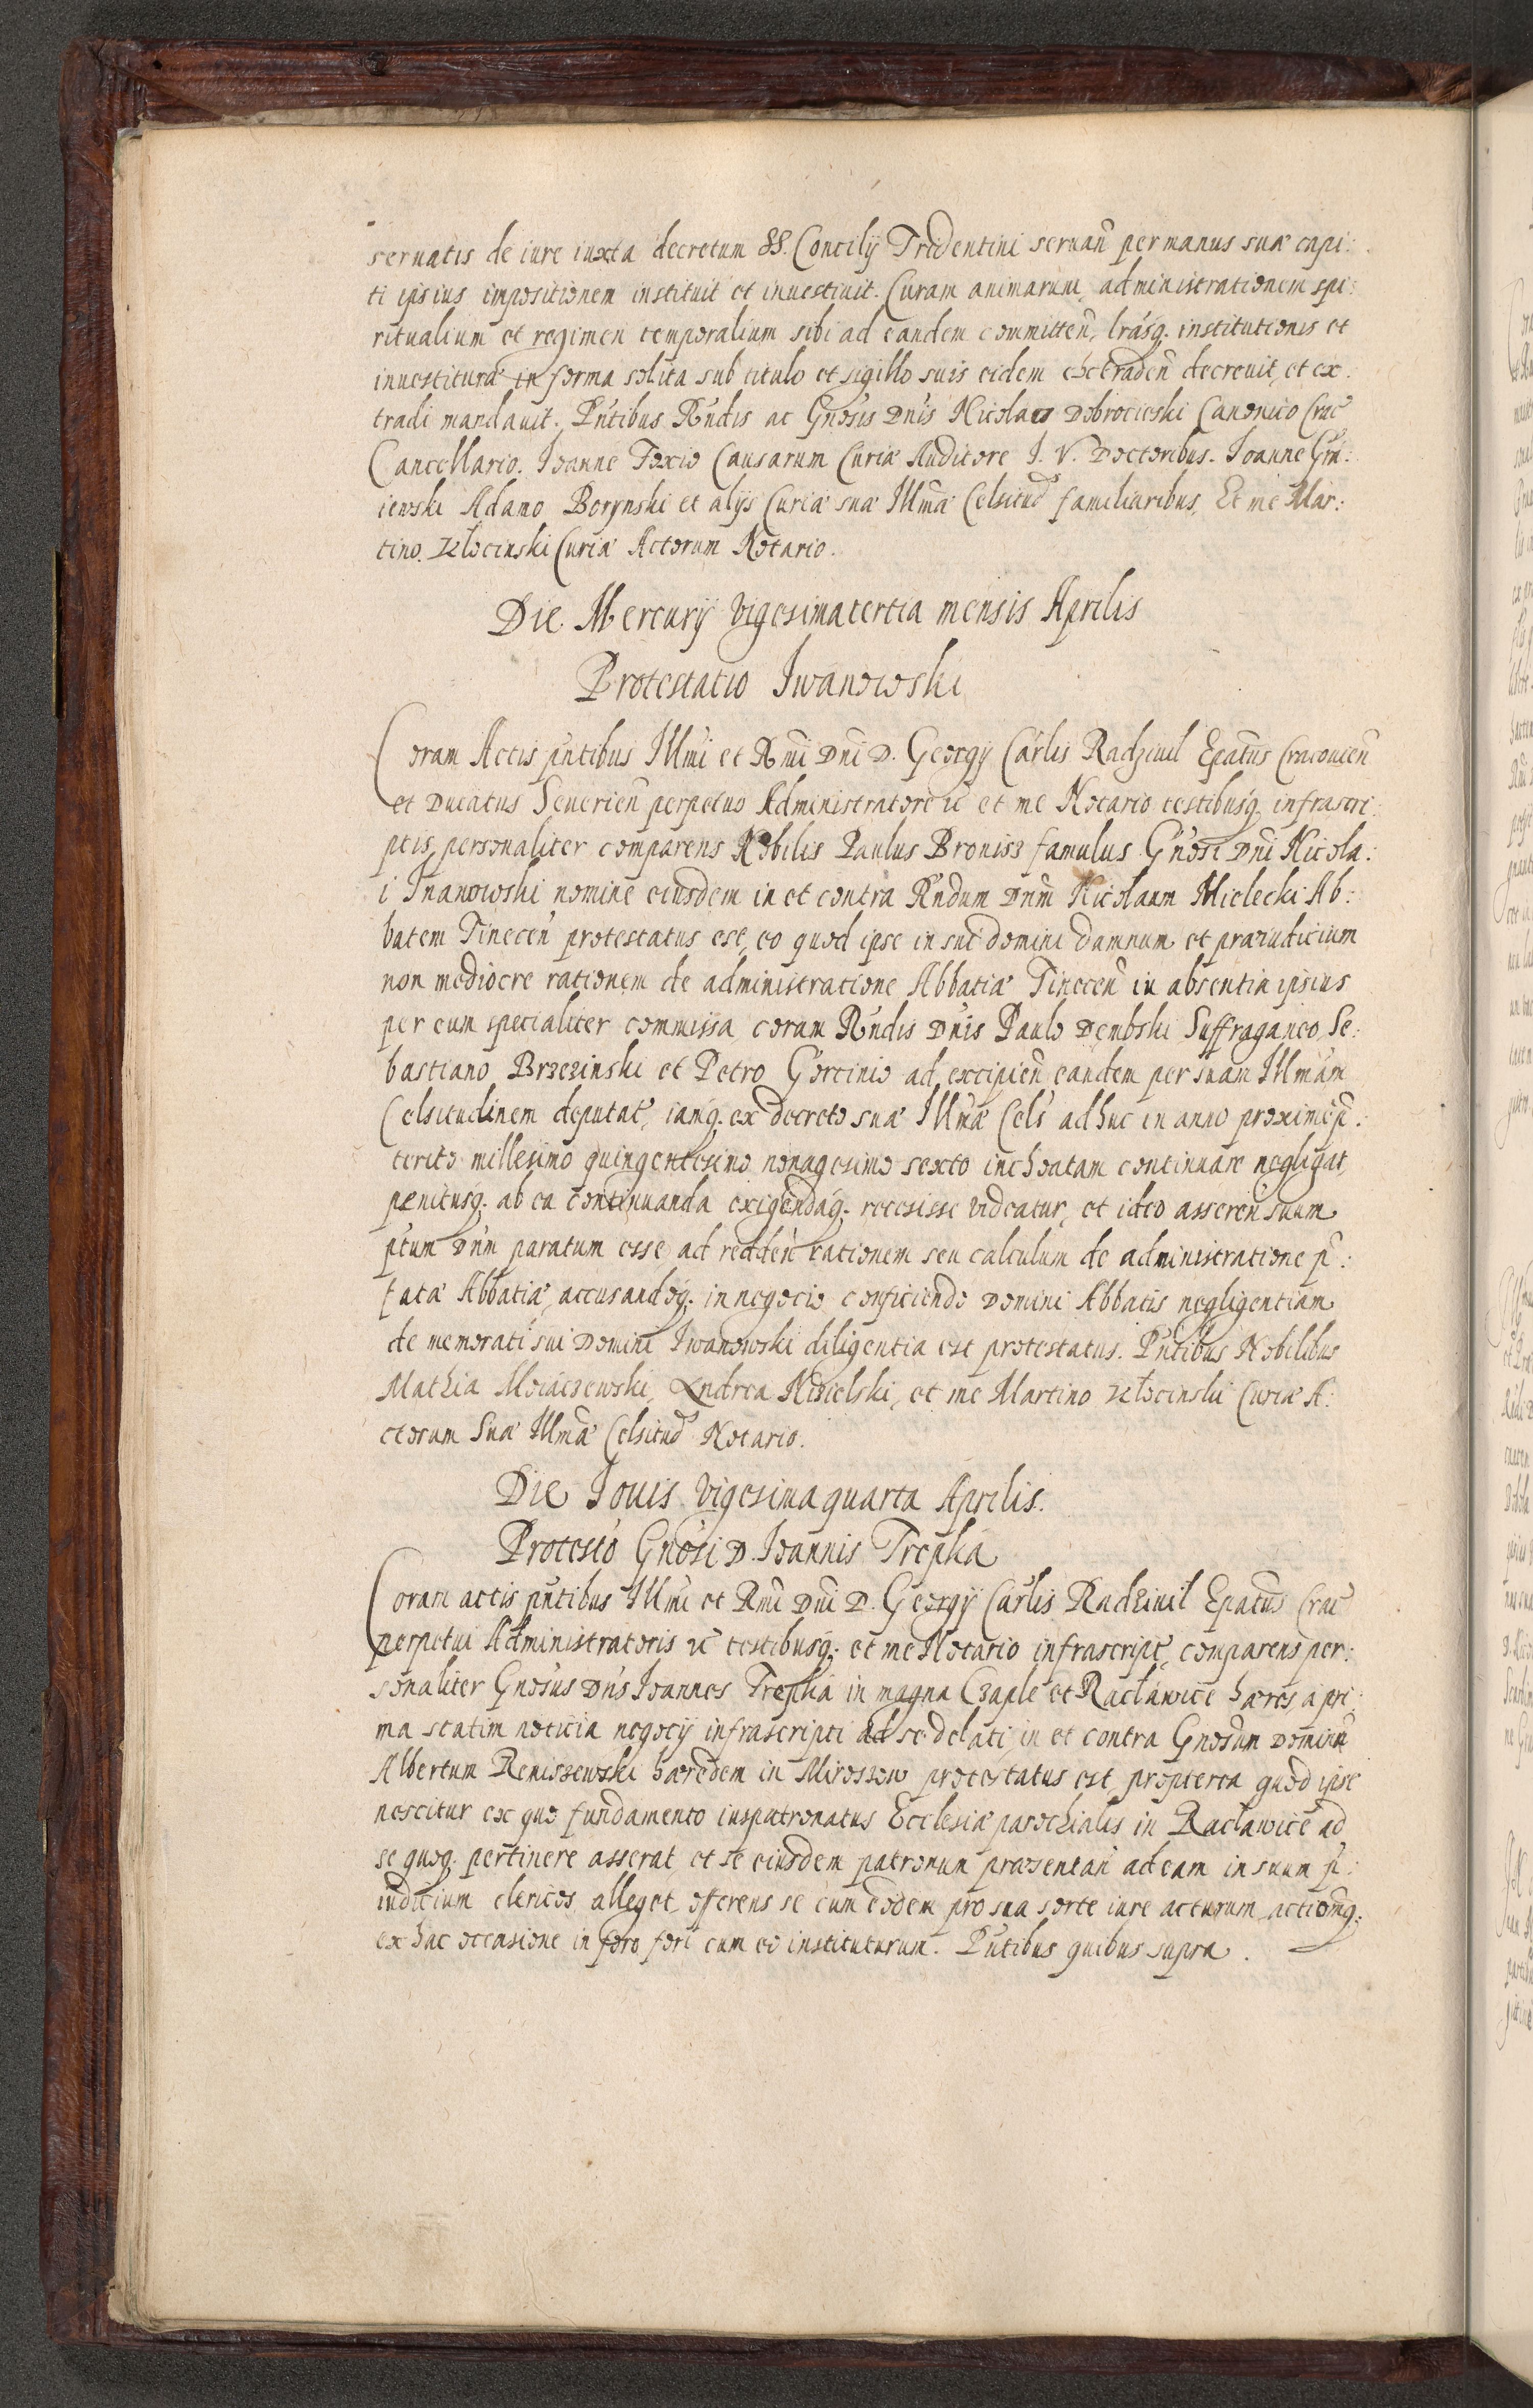 seruatis de iure iuxta decretum SS. Concilij Tridentini seruan̄ per manus suæ capi:
ti ipsius impositionem instituit et inuestiuit. Curam animarum, administrationem spi:
ritualium et regimen temporalium sibi ad eandem committen̄, lrāsq. institutionis et
inuestituræ in forma solita sub titulo et sigillo suis eidem extraden̄ decreuit, et ex
tradi mandauit. Pn̄tibus Rn̄dis ac Gn̄osis Dnīs Nicolao Dobrocieski Canonico Crac̄
Cancellario. Ioanne Foxio Causarum Curiæ Auditore I. V. Doctoribus. Ioanne Gra:
iewski Adamo Borynski et alijs Curiæ suæ Illmæ Celsitud̄ familiaribus, Et me Mar:
tino Złocinski Curiæ Actorum Notario.
Die Mercurij vigesimatertia mensis Aprilis
Protestatio Iwanowski
Coram Actis pn̄tibus Illmi et Rmi Dni D. Georgij Carlis Radziuil Epatus Cracouien̄
et Ducatus Seuerien̄ perpetuo Administratore &c et me Notario testibusq. infrascri:
ptis personaliter comparens Nobilis Paulus Bronisz famulus Gn̄osi Dni Nicola:
i Iwanowski nomine eiusdem in et contra Rn̄dum Dnm Nicolaum Mielecki Ab:
batem Tinecen̄ protestatus est, eo quod ipse in sui domini damnum et præiudicium
non mediocre rationem de administratione Abbatiæ Tinecen̄ in absentia ipsius
per eum specialiter commissa coram Rn̄dis Dnīs Paulo Dembski Suffraganeo, Se:
bastiano Brzezinski et Petro Gorcinio ad excipien̄ eandem per suam Illmam
Celsitudinem deputat̄, iamq. ex decreto suæ Illmæ Cels̄ adhuc in anno proxime p̄:
terito millesimo quingentesimo nonagesimo sexto inchoatam continuare negligat,
penitusq. ab ea continuanda exigendaq. recesisse videatur, et ideo asseren̄ suum
p̄tum Dnm paratum esse ad redden̄ rationem seu calculum de administratione p̄:
fatæ Abbatiæ, accusandoq. in negocio conficiendo Domini Abbatis negligentiam
de memorati sui Domini Iwanowski diligentia est protestatus. Pn̄tibus Nobilibus
Mathia Andrea Kisielski, et me Martino Złocinski Curiæ A:
ctorum Suæ Illmæ Celsitud̄ Notario.
Die Iouis vigesimaquarta Aprilis.
Protestō Gn̄osi D. Ioannis Trepka
Coram actis pn̄tibus Illmi et Rmi Dni D. Georgij Carlis Radziuil Epatus Crac̄
perpetui Administratoris &c testibusq. et me Notario infrascript̄, comparens per:
sonaliter Gnosus Dns Ioannes Trepka in magna Czaple et Racławice hæres, a pri:
ma statim noticia negocij infrascripti ad se delati in et contra Gnosum Dominū
Albertum Reniszewski hæredem in Miroszow protestatus est, propterea quod ipse
nescitur ex quo fundamento iuspatronatus Ecclesiæ parochialis in Racławice ad
se quoq. pertinere asserat, et se eiusdem patronum præsentan̄ ad eam in suum p̄:
iudicium clericos alleget, offerens se cum eodem pro sua sorte iure acturum, actionēq.
ex hac occasione in foro fori cum eo instituturum. Pn̄tibus quibus supra.